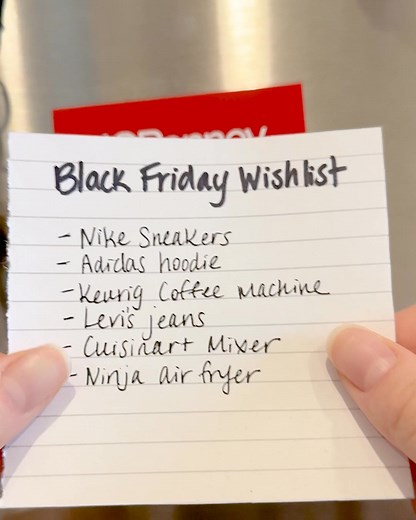 JCPenney
Black Friday Wishlist
- Nike Sneakers
- Adidas hoodie
- Keurig Coffee Machine
- Levi's jeans
- Cuisinart Mixer
- Ninja air fryer